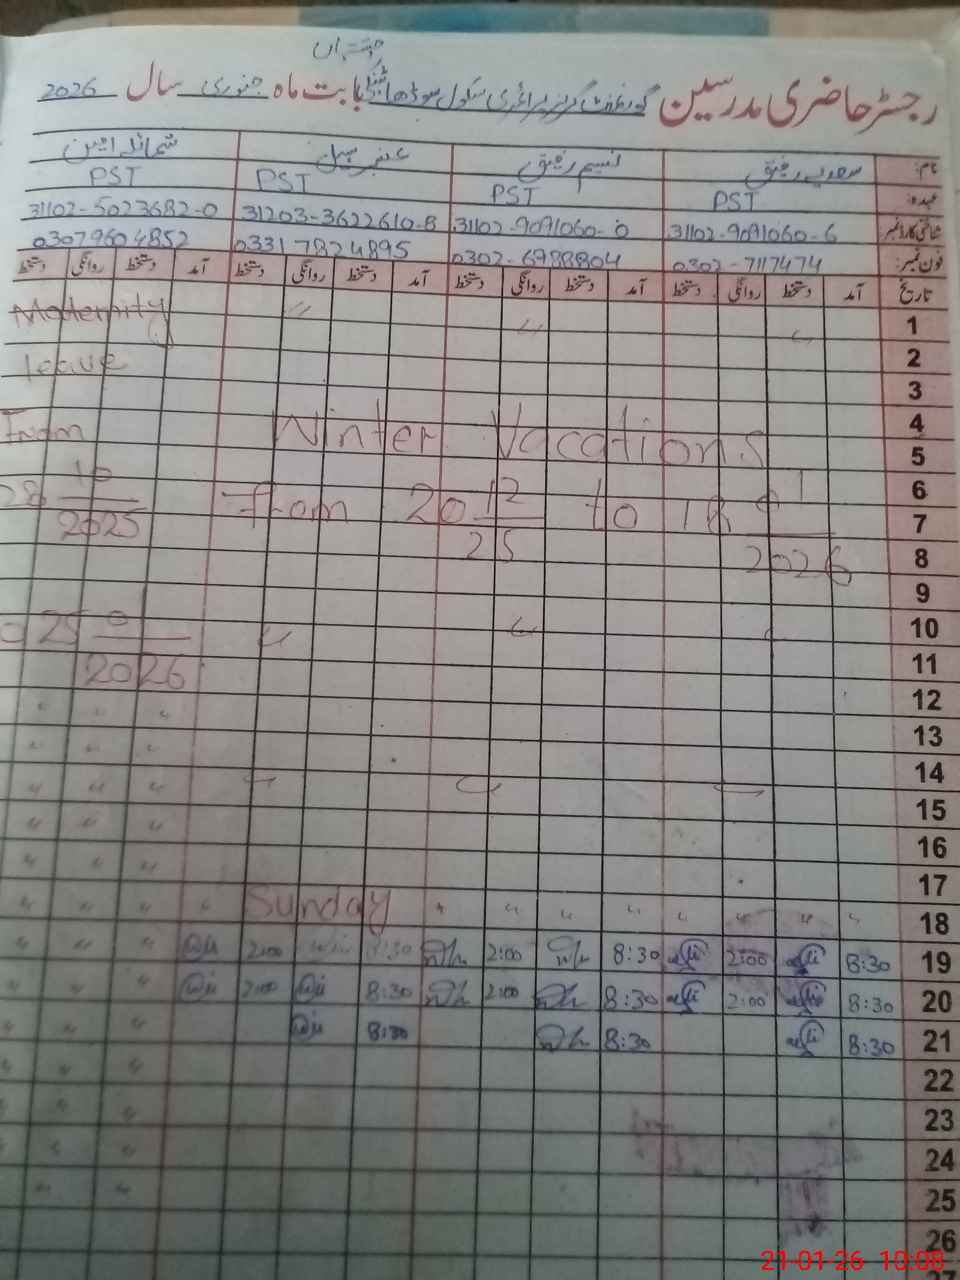 چشتیاں
رجسٹر حاضری مدرسین گورنمنٹ گرلز پرائمری سکول سوڈھا بابت ماہ جنوری سال 2026
نام: سعدیہ رفیق نسیم رفیق عنبر شمائلہ امین
عہدہ: PST PST PST PST
شناختی کارڈ نمبر 31102-9091060-6 31102-9091060-0 31203-3622610-8 31102-5023682-0
فون نمبر: 0302-7117474 0302-6988804 03317824895 03079604852
تاریخ آمد دستخط روانگی دستخط آمد دستخط روانگی دستخط آمد دستخط روانگی دستخط آمد دستخط روانگی دستخط
1 " " " Maternity
2 leave
3
4 From
5 Winter Vacations
6 28 10
7 from 20 12 to 18 1 2025
8 25 2026
9
10 " " " 25
11 2026
12 " " "
13 " " "
14 " " "
15 " " "
16 " " "
17 " " "
18 " " " " " " " " Sunday " " " "
19 8:30 2:00 8:30 2:00 8:30 2:00 " " "
20 8:30 2:00 8:30 2:00 8:30 2:00 " " "
21 8:30 8:30 8:30 " " "
22 " " "
23 " " "
24 " " "
25 " "
26
27
21-01-26 10:08